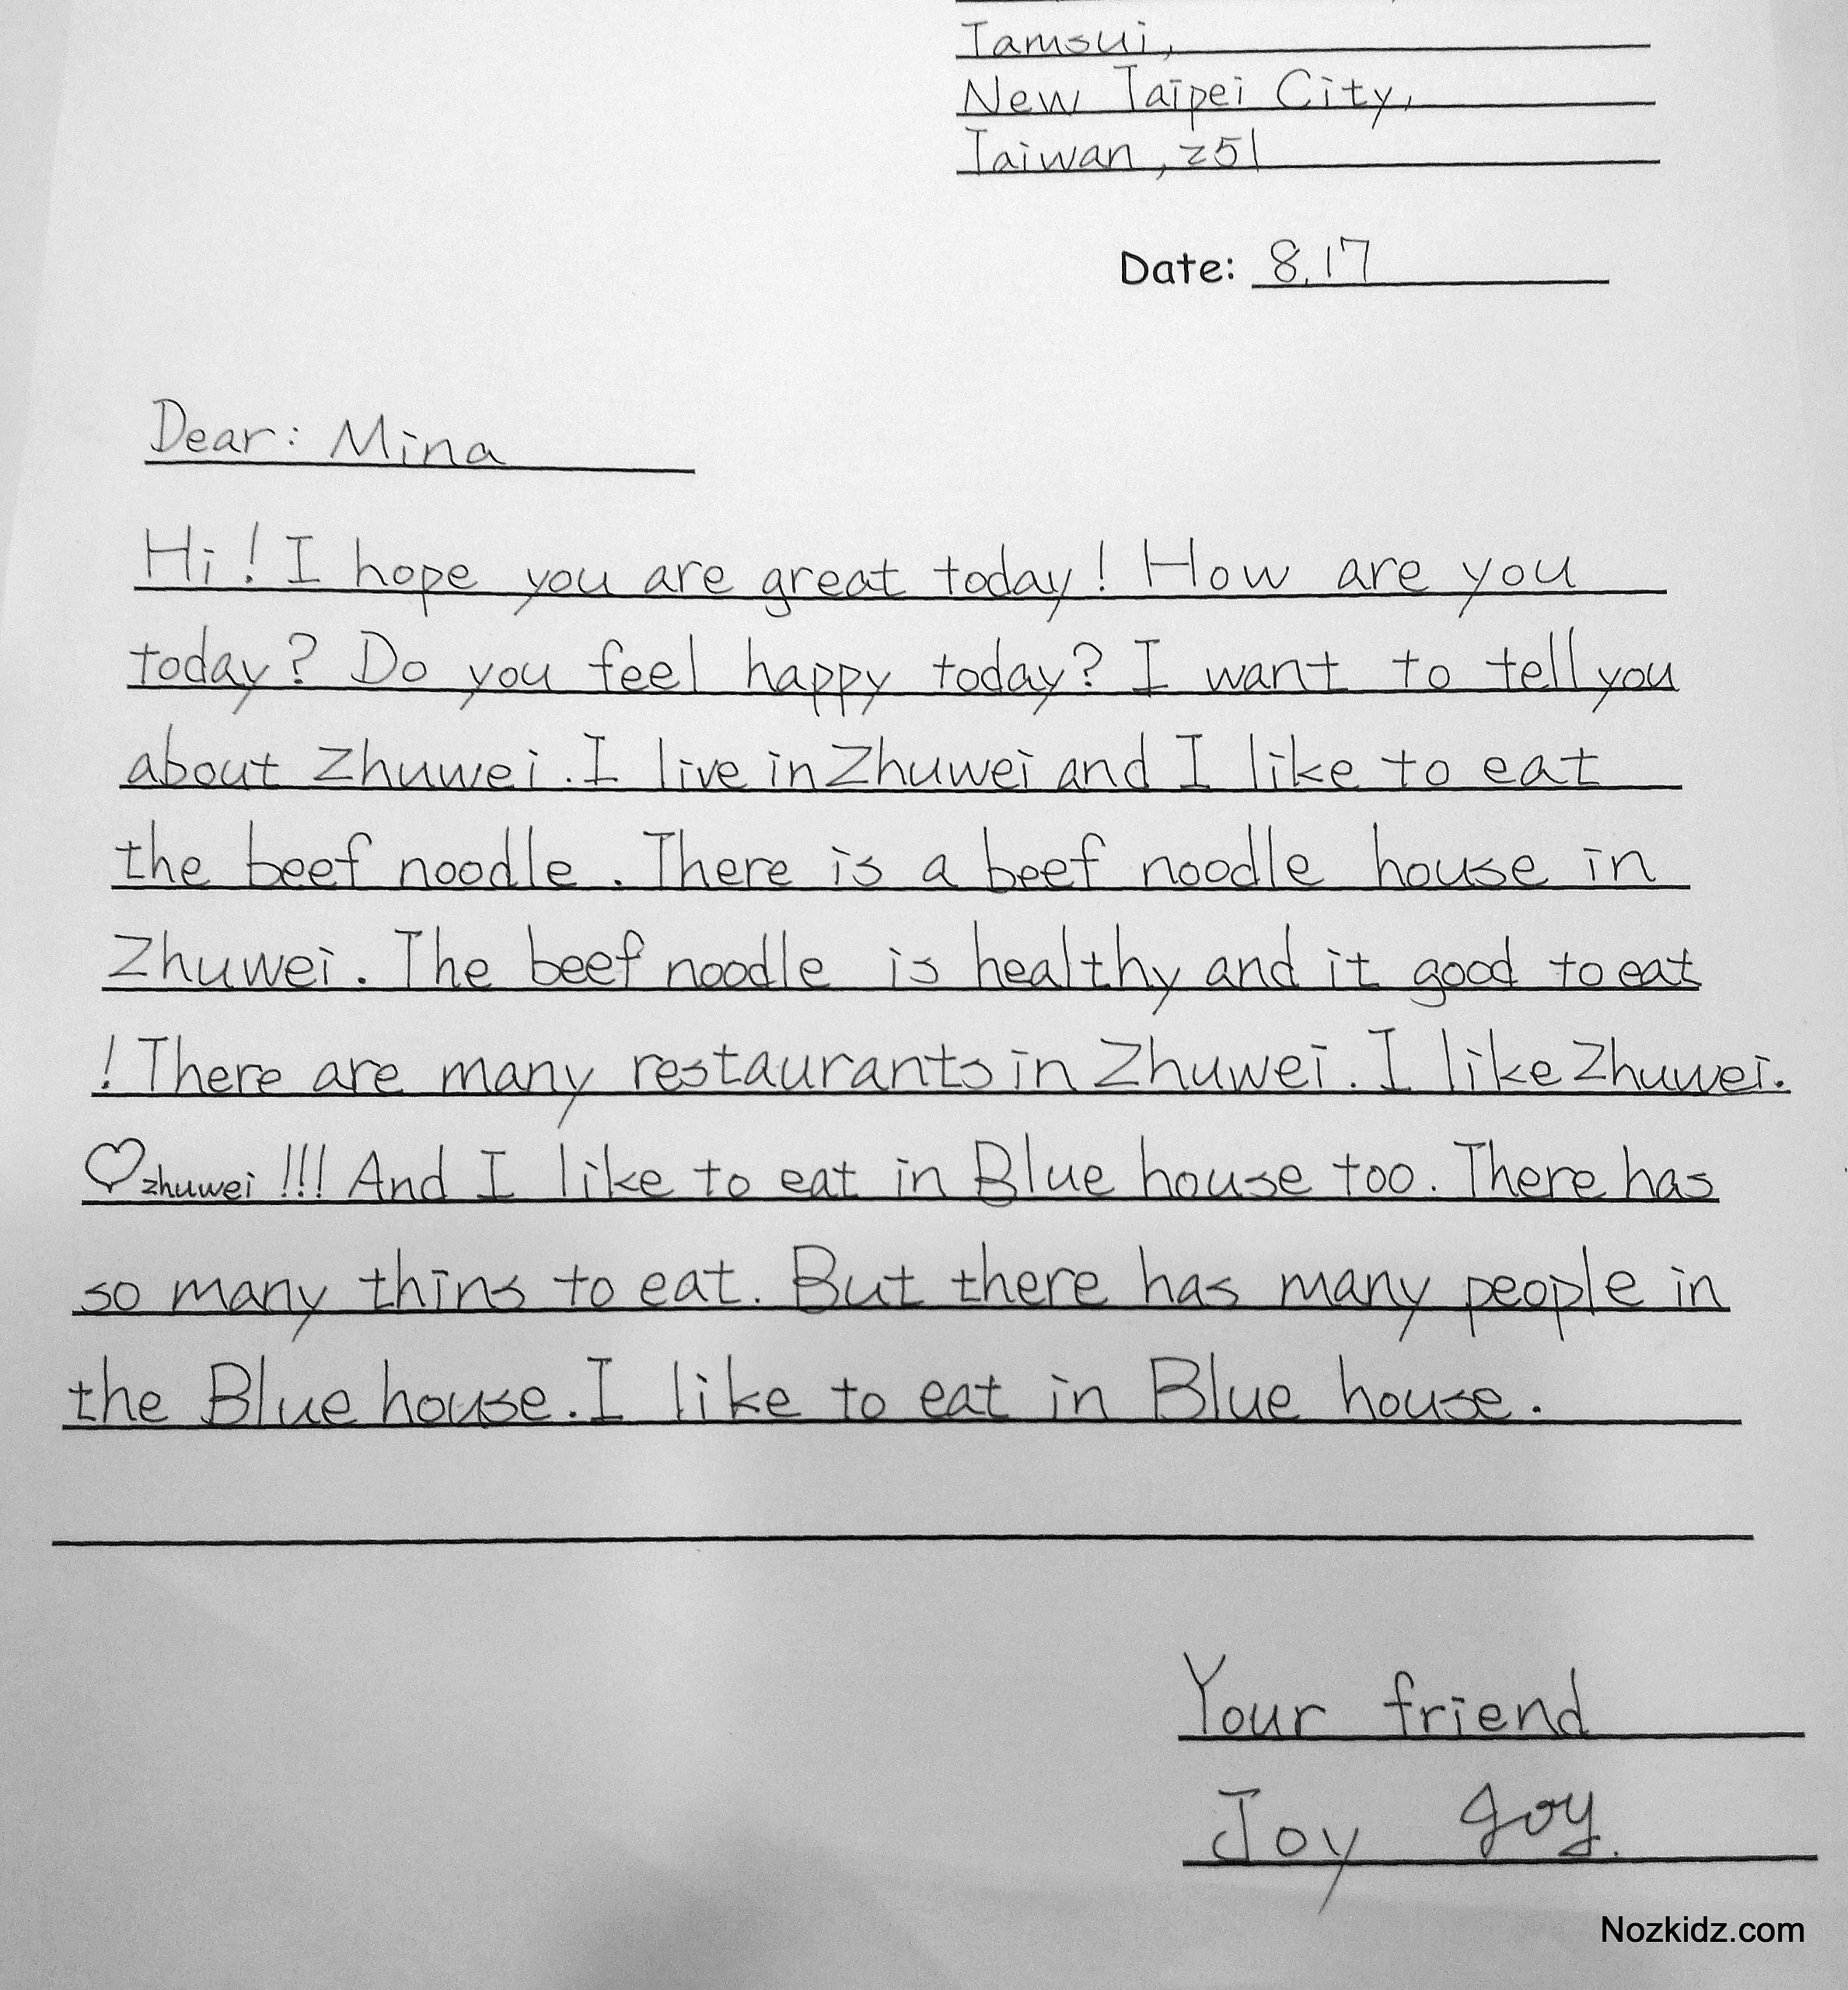 Tamsui,
New Taipei City,
Taiwan, 251
Date: 8.17
Dear: Mina
Hi! I hope you are great today! How are you
today? Do you feel happy today? I want to tell you
about Zhuwei. I live in Zhuwei and I like to eat
the beef noodle. There is a beef noodle house in
Zhuwei. The beef noodle is healthy and it good to eat
! There are many restaurants in Zhuwei. I like Zhuwei.
♡ zhuwei !!! And I like to eat in Blue house too. There has
so many thins to eat. But there has many people in
the Blue house. I like to eat in Blue house.
Your friend
Joy Joy.
Nozkidz.com